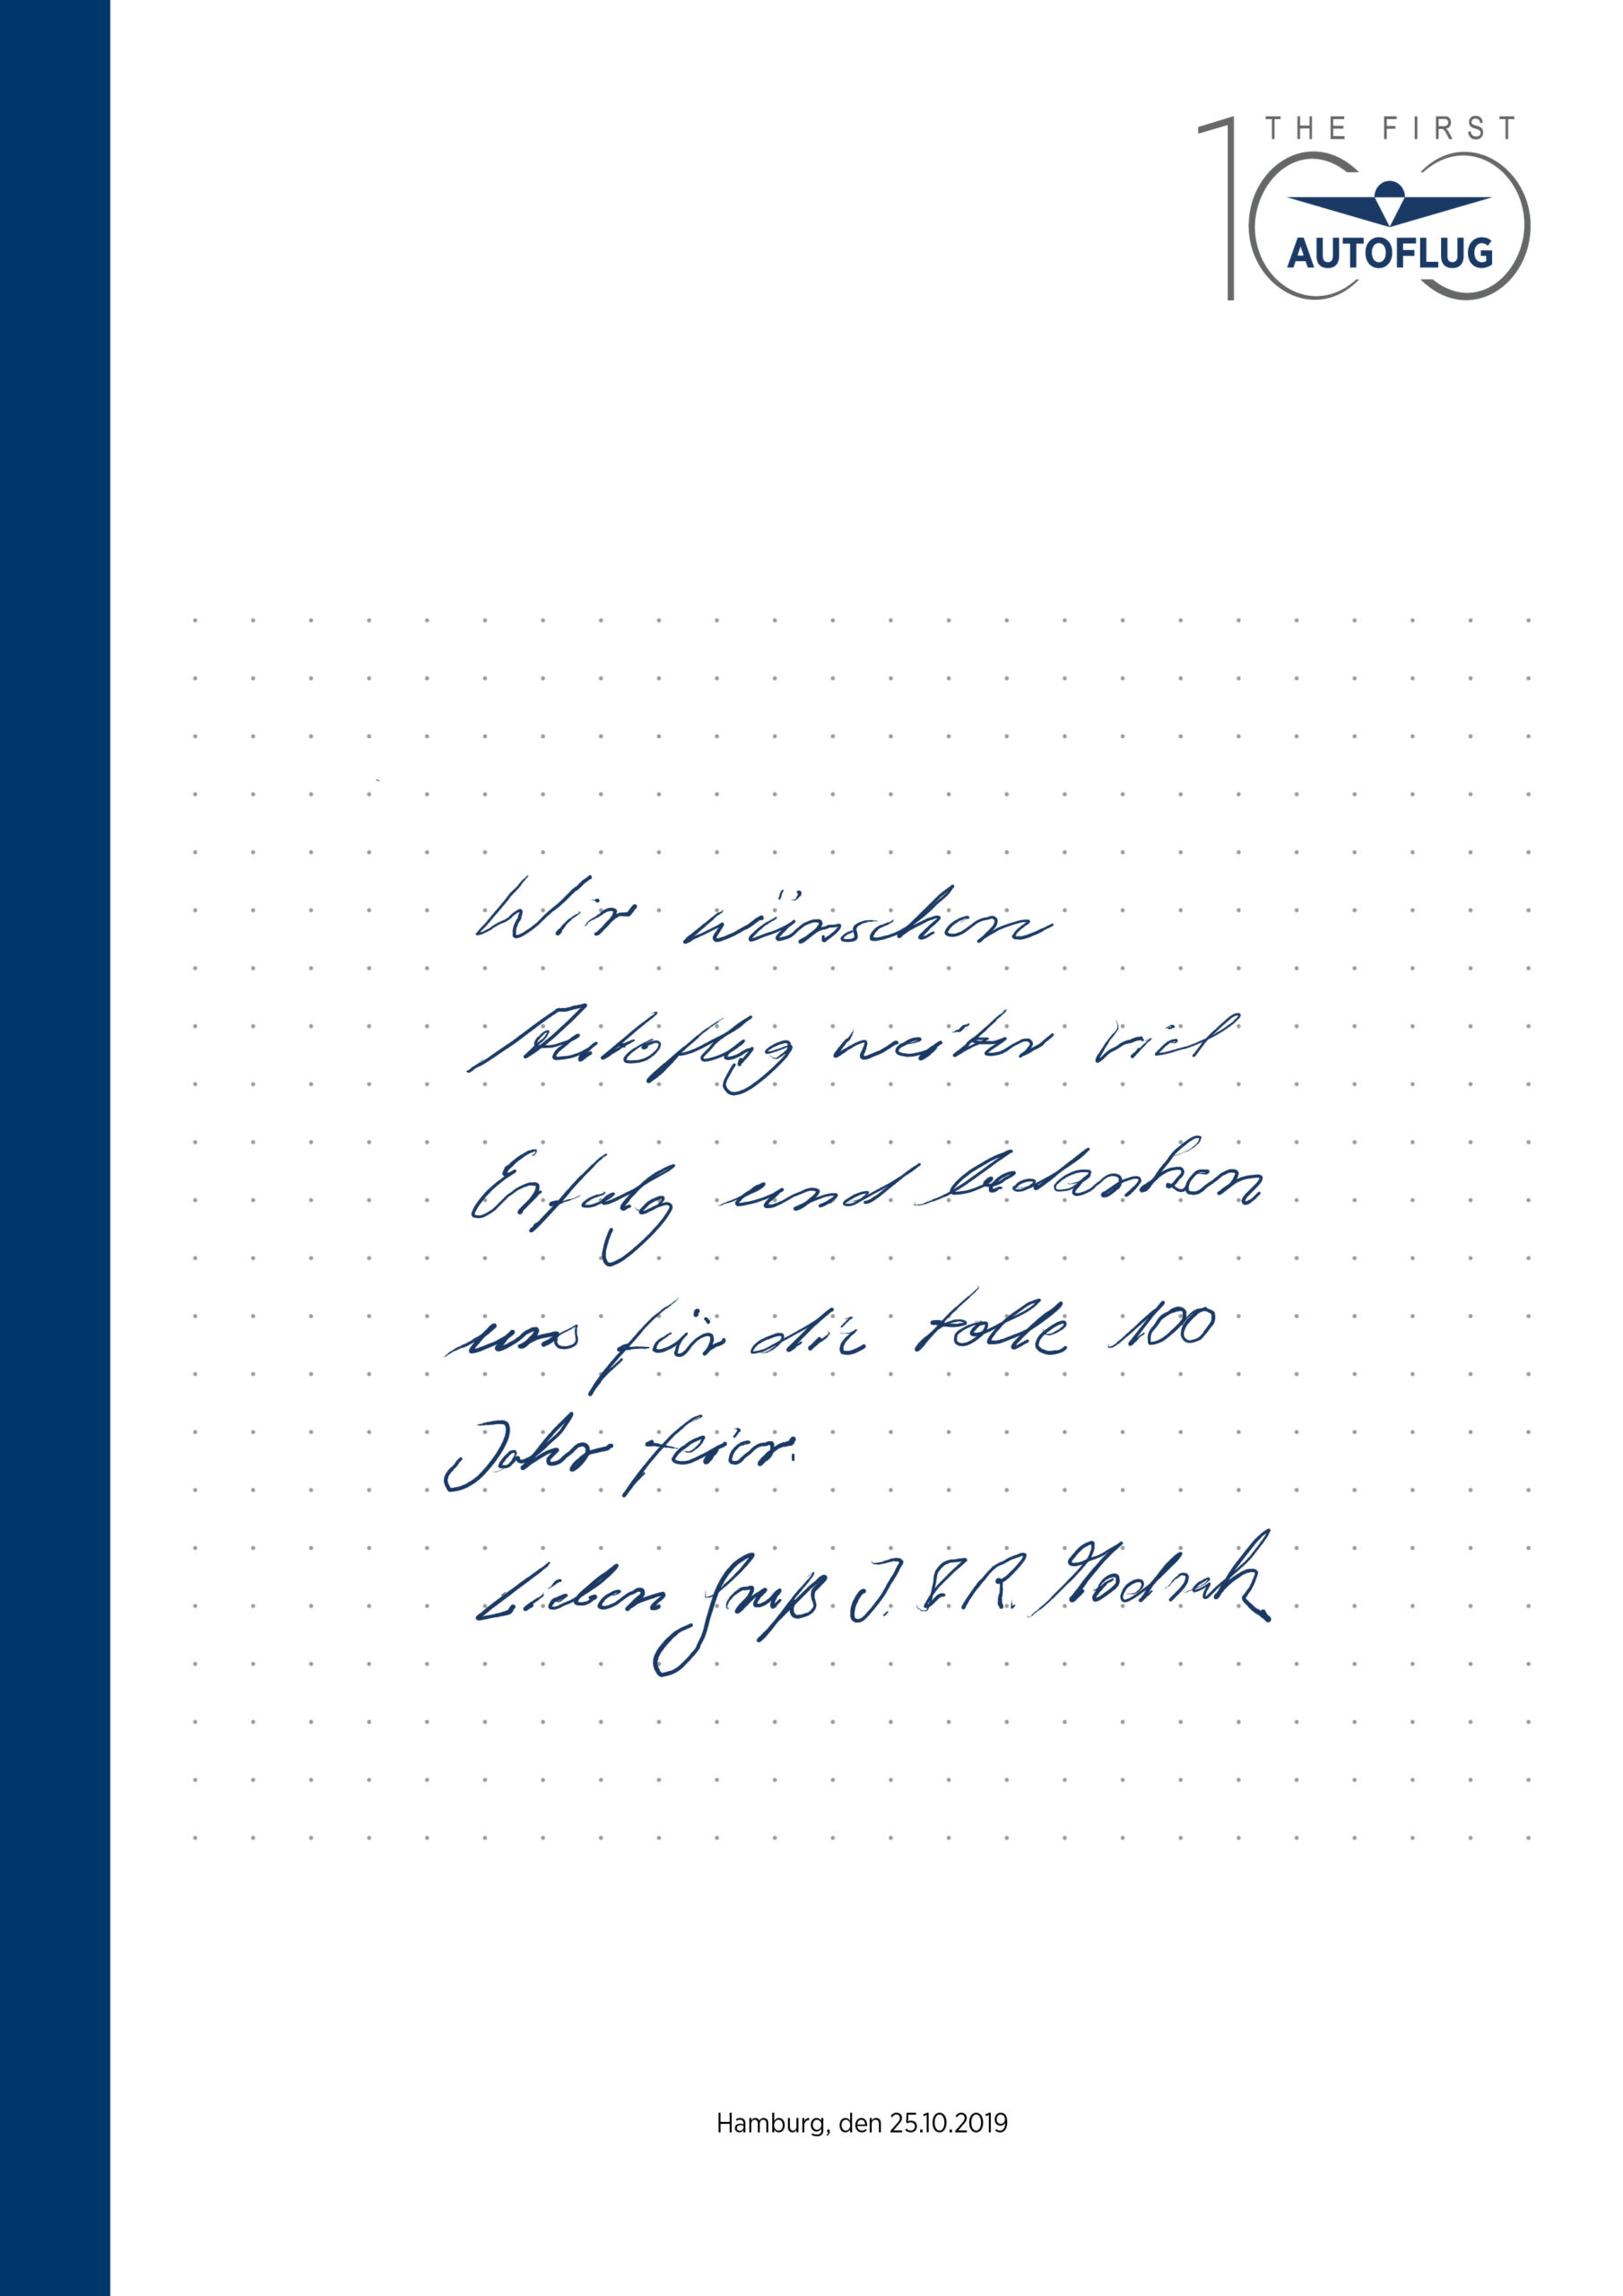 THE FIRST
100
AUTOFLUG
Wir wünschen
Autoflug weiter viel
Erfolg und bedanken
uns für die tolle 100
Jahr feier.
Lieben Gruß J. & R.
Hamburg, den 25.10.2019